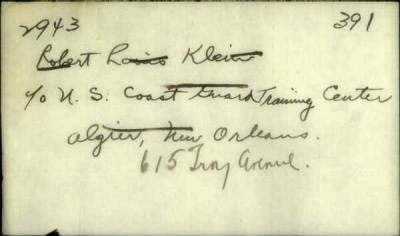 2943 391
Robert Louis Klein
c/o U. S. Coast Guard Training Center
Algier, New Orleans.
615 Troy Avenue.